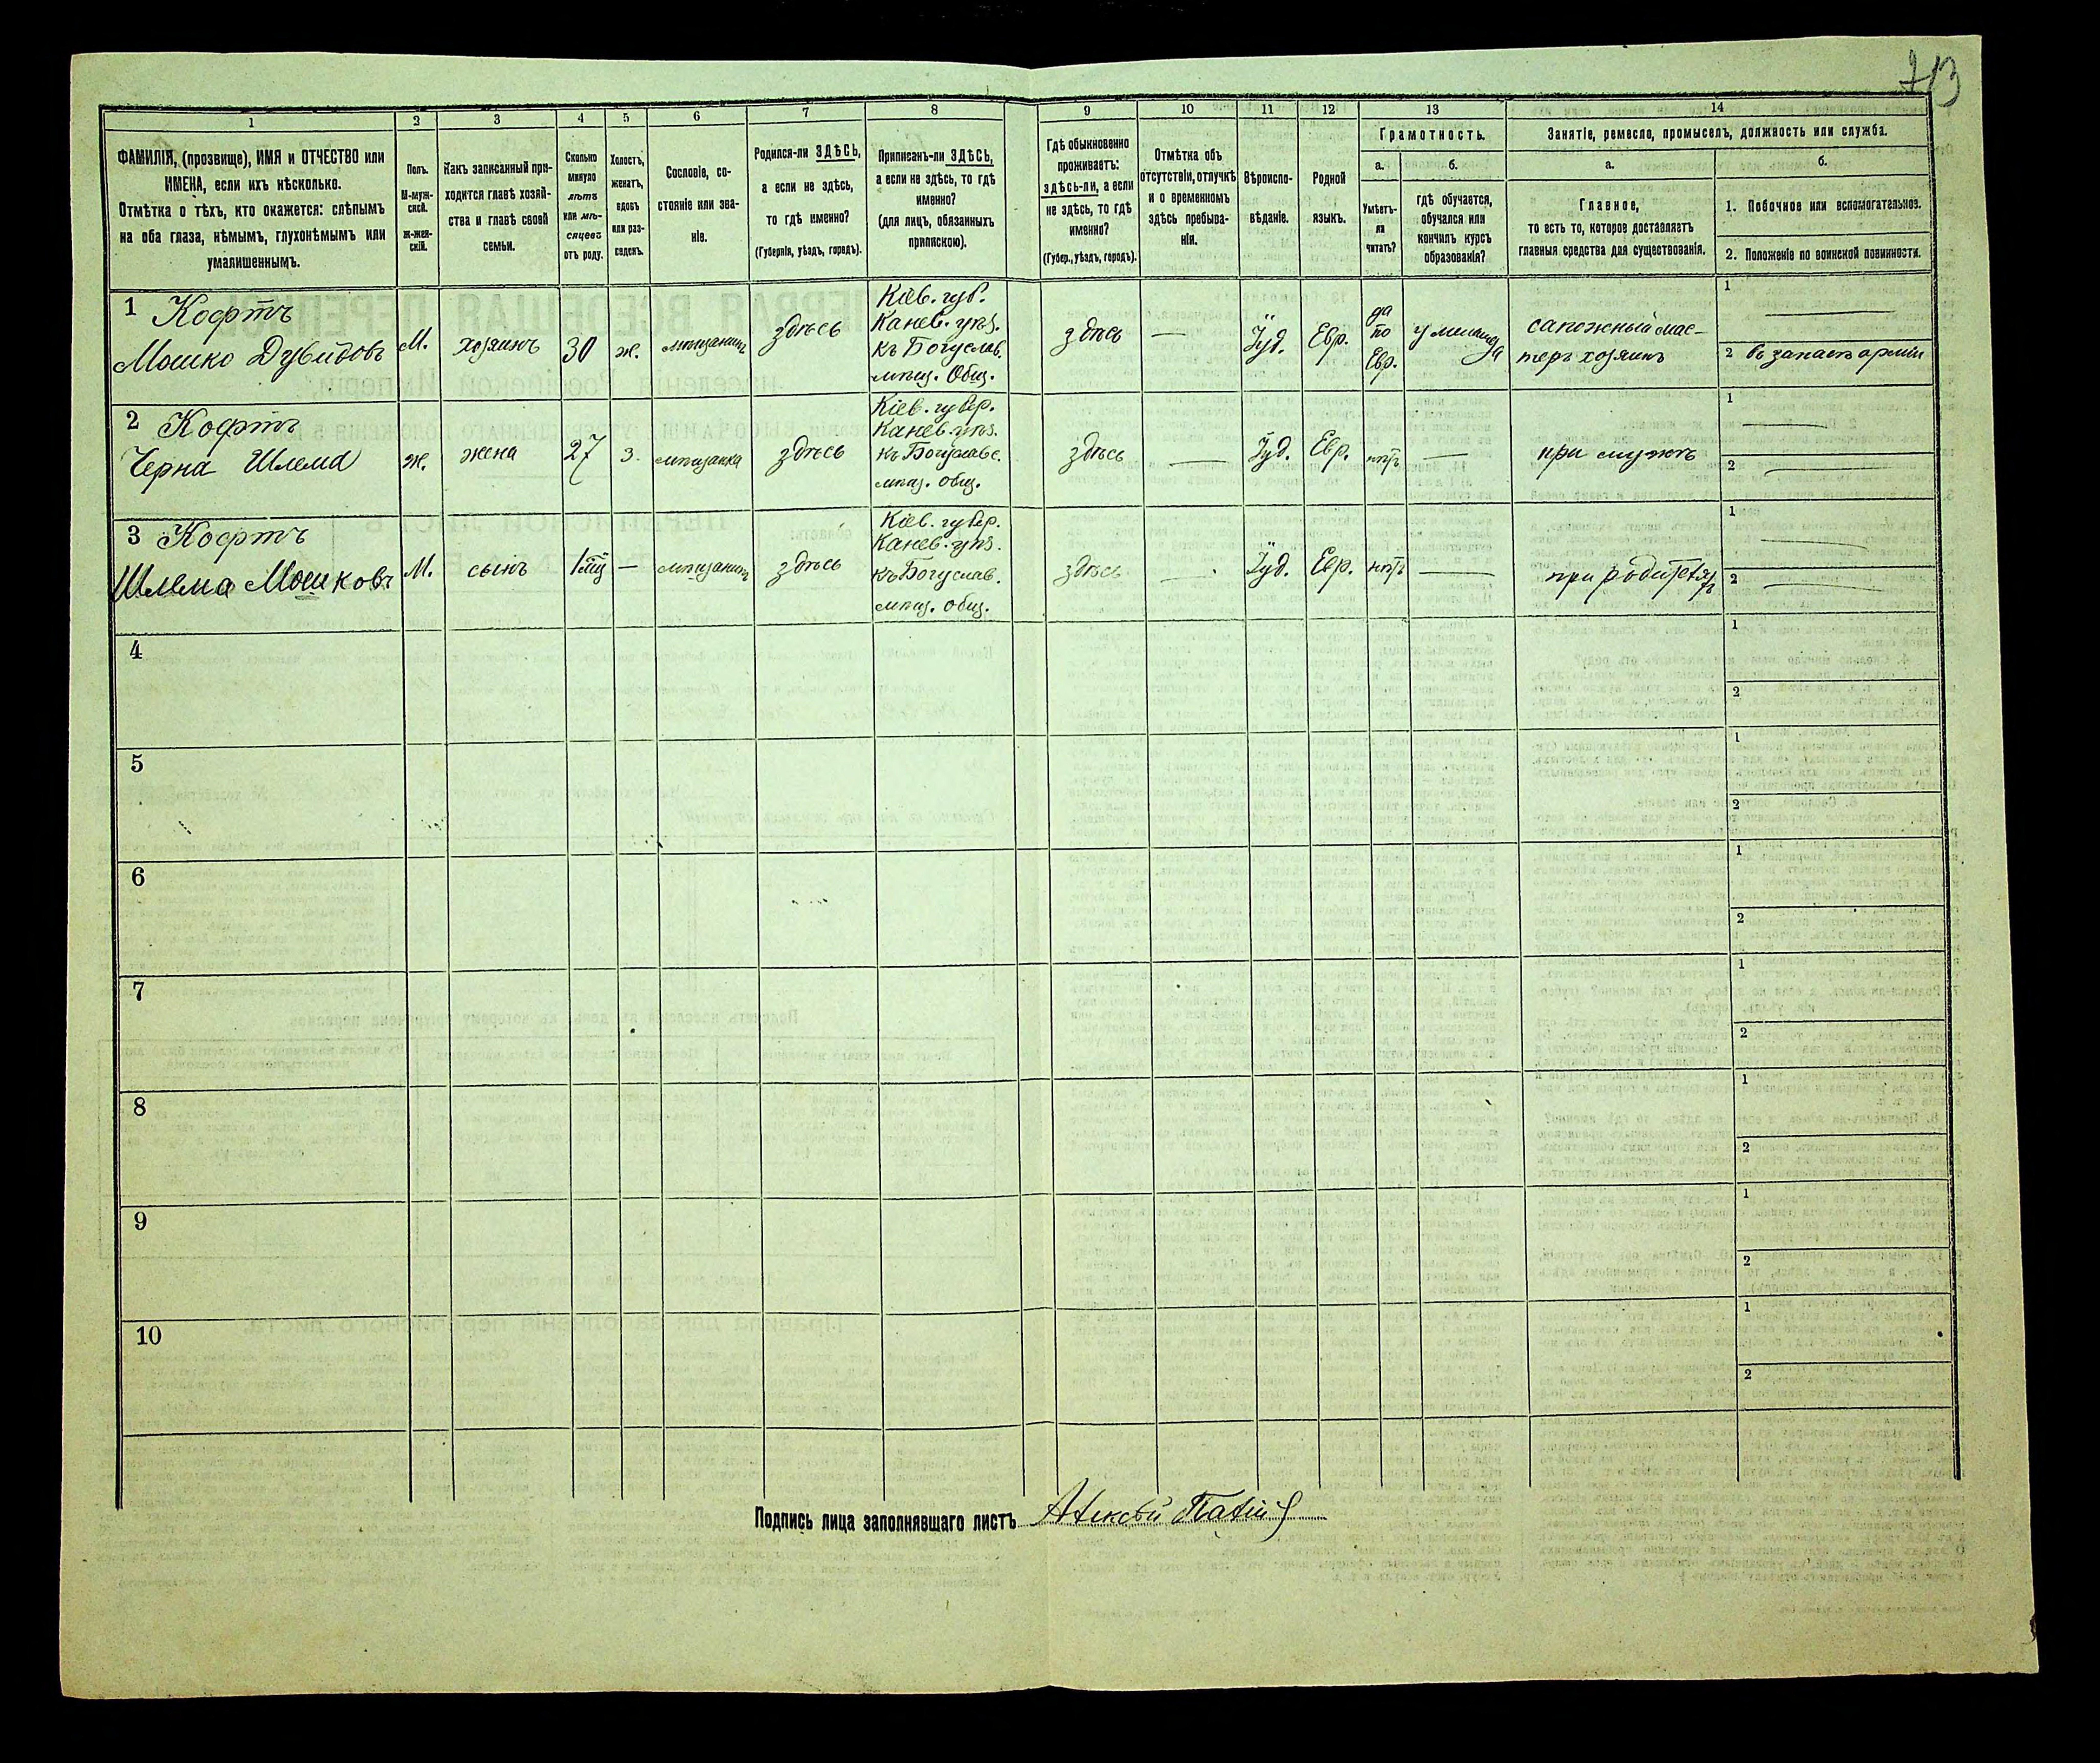 713
1
2
3
4
5
6
7
8
9
10
11
12
13
14
ФАМИЛІЯ, (прозвище), ИМЯ и ОТЧЕСТВО или
ИМЕНА, если ихъ нѣсколько.
Отмѣтка о тѣхъ, кто окажется: слѣпымъ
на оба глаза, нѣмымъ, глухонѣмымъ или
умалишеннымъ.
Полъ.
М-муж-
ской.
Ж-жен-
скій.
Какъ записанный при-
ходится главѣ хозяй-
ства и главѣ своей
семьи.
Сколько
минуло
лѣтъ
или мѣ-
сяцевъ
отъ роду.
Холостъ,
женатъ,
вдовъ
или раз-
веденъ.
Сословіе, со-
стояніе или зва-
ніе.
Родился-ли ЗДѢСЬ,
а если не здѣсь,
то гдѣ именно?
(Губернія, уѣздъ, городъ).
Приписанъ-ли ЗДѢСЬ,
а если не здѣсь, то гдѣ
именно?
(для лицъ, обязанныхъ
припискою).
Гдѣ обыкновенно
проживаетъ:
здѣсь-ли, а если
не здѣсь, то гдѣ
именно?
(Губер., уѣздъ, городъ).
Отмѣтка объ
отсутствіи, отлучкѣ
и о временномъ
здѣсь пребыва-
ніи.
Вѣроиспо-
вѣданіе.
Родной
языкъ.
Грамотность.
а.
б.
Умѣетъ-
ли
читать?
гдѣ обучается,
обучался или
кончилъ курсъ
образованія?
Занятіе, ремесло, промыселъ, должность или служба.
а.
б.
Главное,
то есть то, которое доставляетъ
главныя средства для существованія.
1. Побочное или вспомогательное.
2. Положеніе по воинской повинности.
1 Кофтъ
Мошко Дувидовъ
М.
хозяинъ
30
ж.
мѣщанинъ
здѣсь
Кіев. губ.
Канев. уѣз.
къ Богуслав.
мѣщ. Общ.
здѣсь
—
Іуд.
Евр.
да
по
Евр.
у меламеда
сапожный мас-
теръ хозяинъ
1 —
2 въ запасѣ арміи
2 Кофтъ
Черна Шлема
ж.
жена
27
з.
мѣщанка
здѣсь
Кіев. губер.
Канев. уѣз.
къ Богуславс.
мѣщ. общ.
здѣсь
—
Іуд.
Евр.
нѣтъ
—
при мужѣ
1 —
2 —
3 Кофтъ
Шлема Мошковъ
М.
сынъ
—
мѣщанинъ
здѣсь
Кіев. губер.
Канев. уѣз.
къ Богуслав.
мѣщ. общ.
здѣсь
—
Іуд.
Евр.
нѣтъ
—
при родителяхъ
1 —
2 —
4
1
2
5
1
2
6
1
2
7
1
2
8
1
2
9
1
2
10
1
2
Подпись лица заполнявшаго листъ Алексѣй